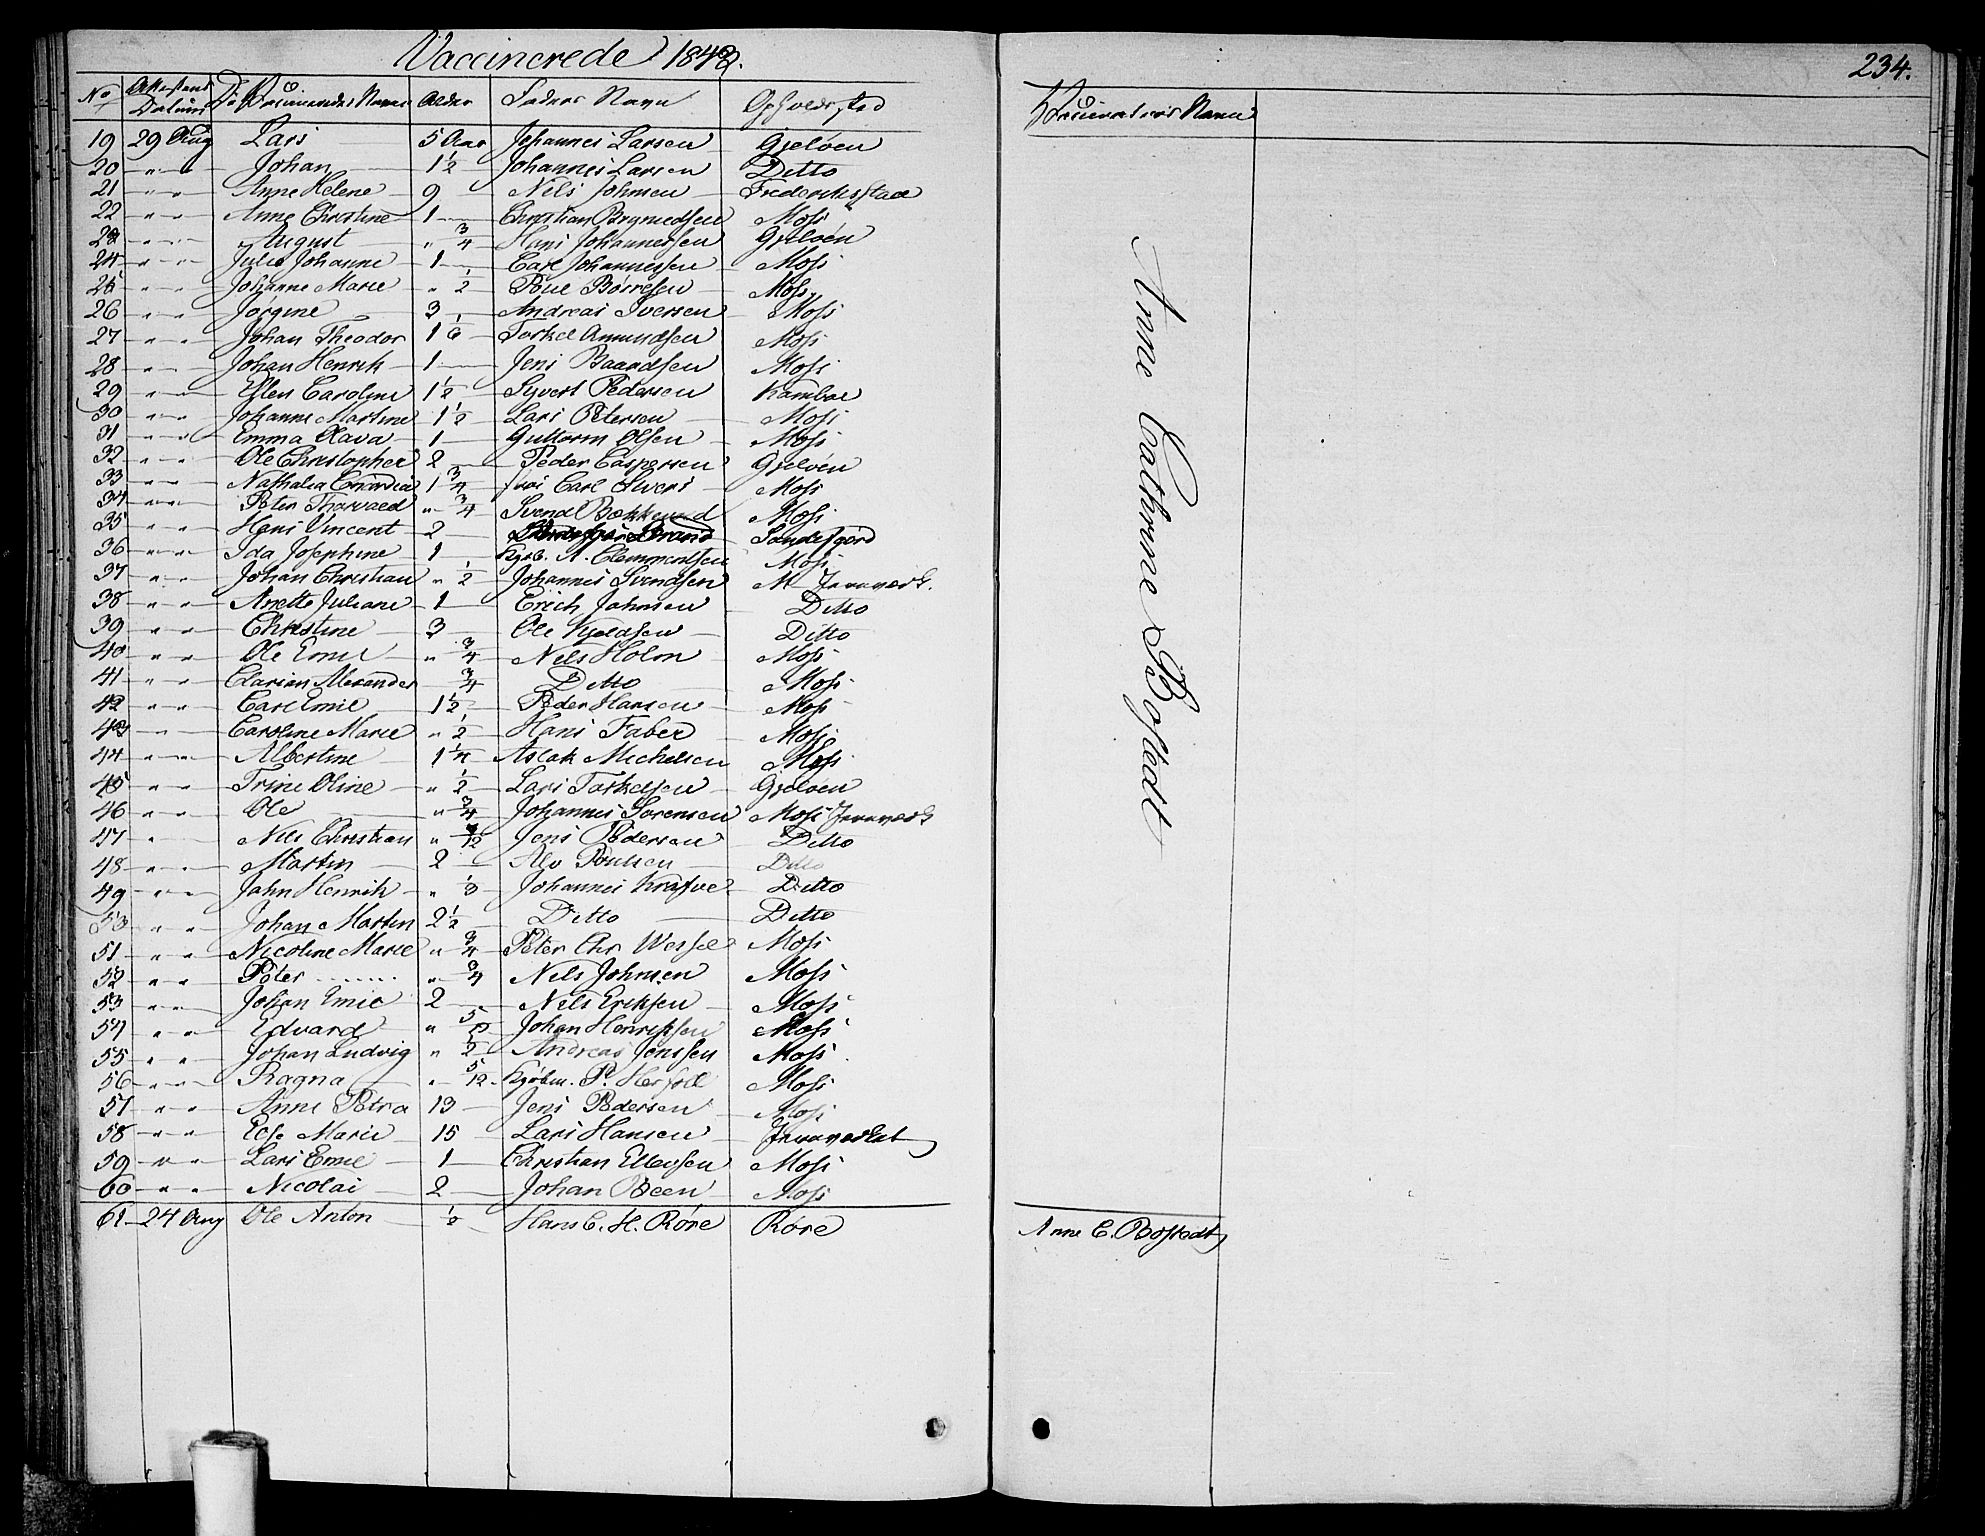 Vaccinerede 1842.
234.
No Attestens Datum De Vaccineredes Navne Alder Faders Navn Opholdssted
Vaccinateurs Navne
19 29 Aug Lars 5 Aar Johannes Larsen Gjeløen
20 " " Johan 1 1/2 Johannes Larsen Ditto
21 " " Anne Helene 9 Nels Johnsen Frederiksstad
22 " " Anne Christine 1 Christian Moss
23 " " August " 3/4 Hans Johannessen Gjeløen
24 " " Julie Johanne 1 Carl Johannessen Moss
25 " " Johanne Marie " 1/2 Børresen Moss
26 " " Jørgine 3 Andreas Iversen Moss
27 " " Johan Theodor 1 1/6 Torkel Amundsen Moss
28 " " Johan Henrik 1 Jens Baardsen Moss
29 " " Ellen Caroline 1 1/2 Syvert Pedersen Kamboe
30 " " Johanne Martine 1 1/2 Lars Petersen Moss
31 " " Emma Olava 1 Guttorm Olsen Moss
32 " " Ole Christopher 2 Peder Caspersen Gjeløen
33 " " Nathalia 1 3/4 Carl Moss
34 " " Peter Thorvald " 3/4 Svend Moss
35 " " Hans Vincent 2 Sandefjord
36 " " Ida Josephine 1 Kjøb. A. Clemmentsen Moss
37 " " Johan Christian " 1/2 Johannes Svendsen M Jernverk.
38 " " Anette Juliane 1 Erich Johnsen Ditto
39 " " Christine 3 Ole Kjeldsen Ditto
40 " " Ole Emil " 3/4 Nels Holm Moss
41 " " Alexander 3/4 Ditto Moss
42 " " Carl Emil 1 1/2 Peder Hansen Moss
43 " Caroline Marie " 1/2 Hans Faber Moss
44 " " Albertine 1 1/4 Aslak Michelsen Moss
45 " " Trine Oline " 1/2 Lars Torkelsen Gjeløen
46 " " Ole " 3/4 Johannes Sørensen Moss Jernverk
47 " Nils Christian " 7/12 Jens Pedersen Ditto
48 " " Martin 2 Poulsen Ditto
49 " " John Henrik " 1/3 Johannes Krafve Ditto
50 " " Johan Martin 2 1/2 Ditto Ditto
51 " " Nicoline Marie " 3/4 Peter Chr Wessel Moss
52 " " Peter " 3/4 Nels Johnsen Moss
53 " " Johan Emil 2 Nels Eriksen Moss
54 " " Edvard " Johan Henriksen Moss
55 " " Johan Ludvig " 1/2 Andreas Jenssen Moss
56 " " Ragna " 5/12 Kjøbm. P. Herfoll Moss
57 " " Anne Petra 13 Jens Pedersen Moss
58 " " Else Marie 15 Lars Hansen Jernverket
59 " " Lars Emil 1 Christian Ellevsen Moss
60 " " Nicolai 2 Johan Moss
61 24 Aug Ole Anton 1/2 Hans C. H. Røre Røre
Anne Cathrine Bostedt
Anne C. Bostedt